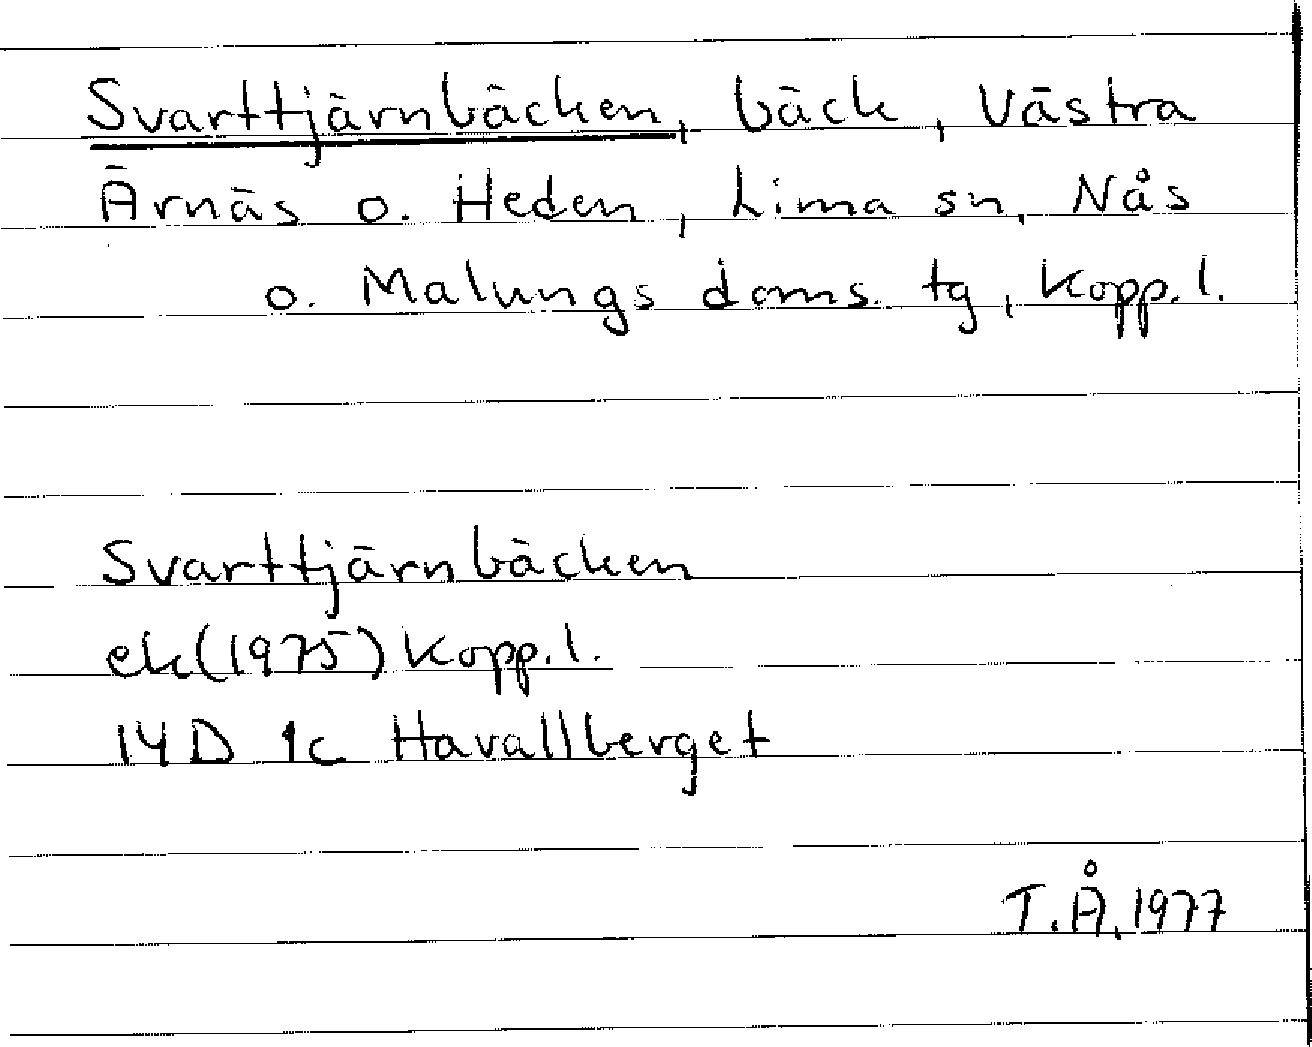 Svarttjärnbäcken, bäck, Västra
Ärnäs o. Heden, Lima sn, Nås
o. Malungs doms. tg, Kopp. l.
Svarttjärnbäcken
ek (1975) Kopp. l.
14D 1c Havallberget
T.Å. 1977